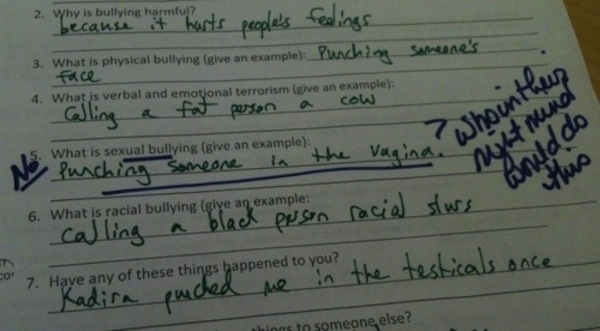 2. Why is bullying harmful?
because it hurts people's feelings
3. What is physical bullying (give an example): Punching someone's
face
4. What is verbal and emotional terrorism (give an example):
Calling a fat person a cow
No 5. What is sexual bullying (give an example):
Punching someone in the vagina.
? who in their
right mind
would do
this
6. What is racial bullying (give an example:
calling a black person racial slurs
7. Have any of these things happened to you?
Kadira punched me in the testicals once
things to someone else?